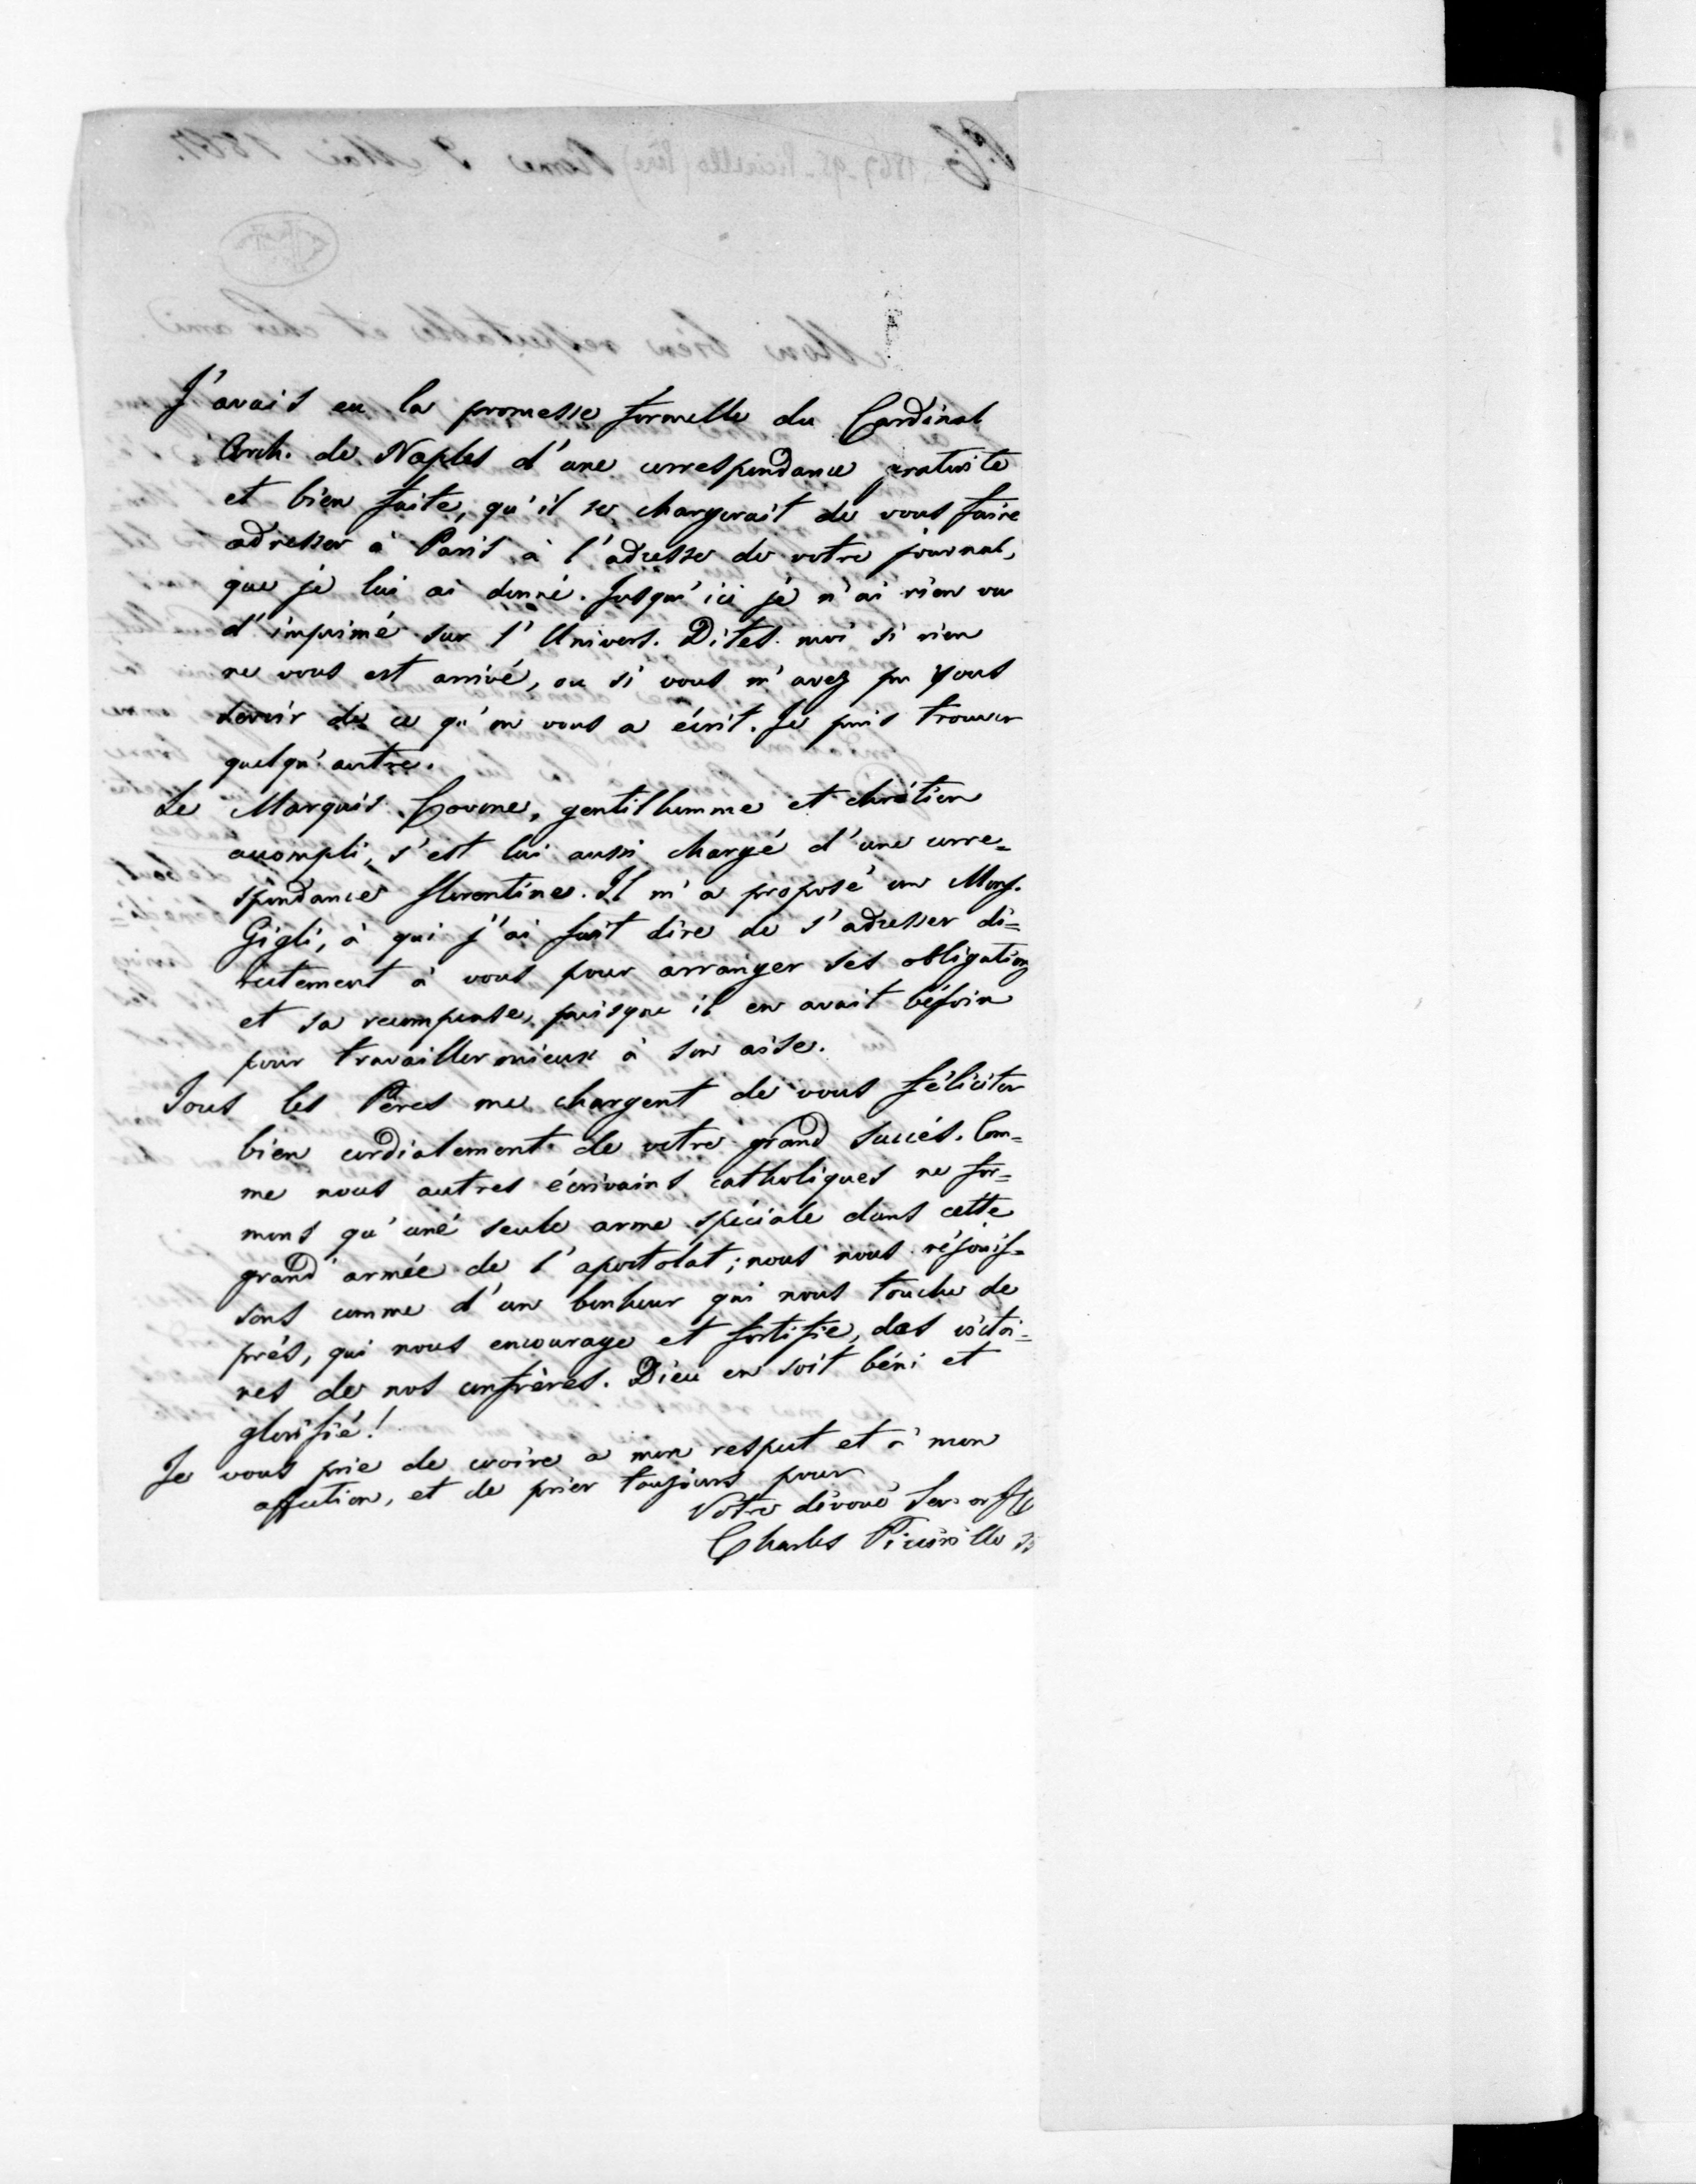 J'avais eu la promesse formelle du Cardinal
Arch. de Naples d'une correspondance gratuite
et bien faite, qu'il se chargerait de vous faire
adresser à Paris à l'adresse de votre journal,
que je lui ai donné. Jusqu'ici je n'ai rien vu
d'imprimé sur l'Univers. Dites-moi si rien
ne vous est arrivé, ou si vous n'avez pu vous
servir de ce qu'on vous a écrit. Je puis trouver
quelqu'autre.
Le Marquis, gentilhomme et chrétien
accompli, s'est lui aussi chargé d'une corre=
spondance florentine. Il m'a proposé un Mons.
Gigli, à qui j'ai fait dire de s'adresser di=
rectement à vous pour arranger ses obligations
et sa recompense, puisque il en avait bésoin
pour travailler mieux à son aise.
Tous les Pères me chargent de vous féliciter
bien cordialement de votre grand succés. Com=
me nous autres écrivains catholiques ne for=
mons qu'une seule arme spéciale dans cette
grand'armée de l'apostolat; nous nous réjouis=
sons comme d'un bonheur qui nous touche de
prés, qui nous encourage et fortifie, des victoi=
res de nos confrères. Dieu en soit béni et
glorifié!
Je vous prie de croire a mon respect et à mon
affection, et de prier toujours pour
Votre dévoué Serv.
Charles Piccirillo
Rome 9 Mai 1867.
1867-95 Piccirillo (Père)
Mon bien respectable et cher ami